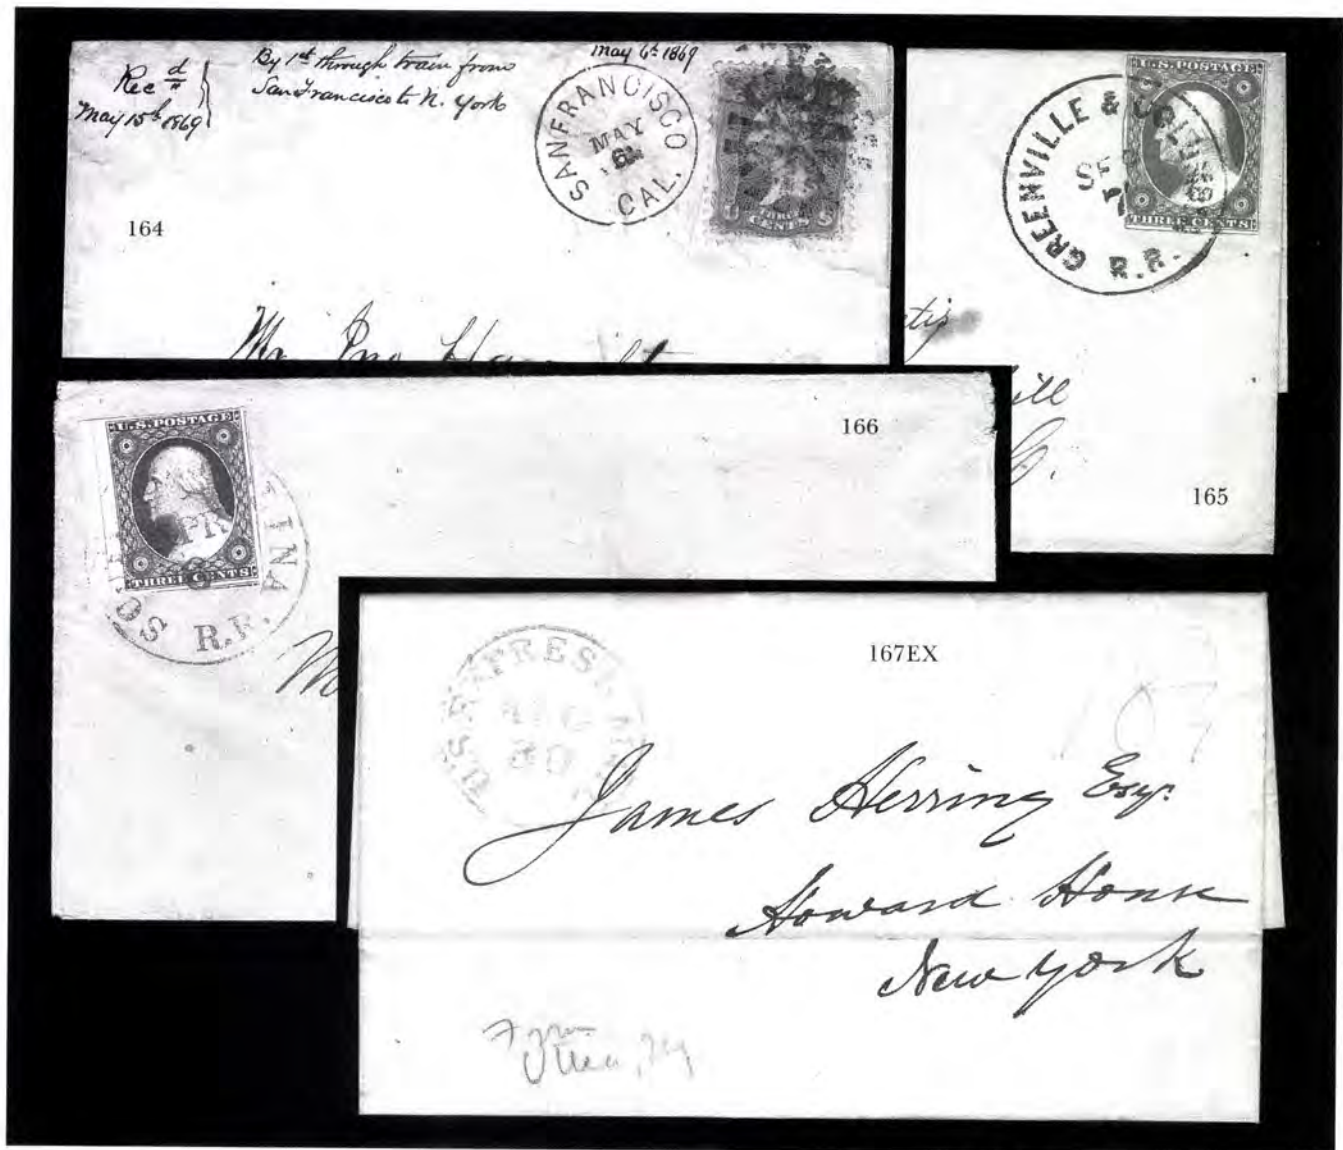 Rec d
May 15th 1869
By 1st through train from
San Francisco to N. York
May 6th 1869
SAN FRANCISCO
MAY
6
CAL.
THREE
CENTS
164
Mr
U.S. POSTAGE
THREE CENTS
GREENVILLE & COLUMBIA
R.R.
ill
165
U.S. POSTAGE
THREE CENTS
SO
INA
R.R.
166
167EX
U.S. EXPRESS MAIL
30
167
James Herring Esqr.
Howard House
New York
From
Utica, NY